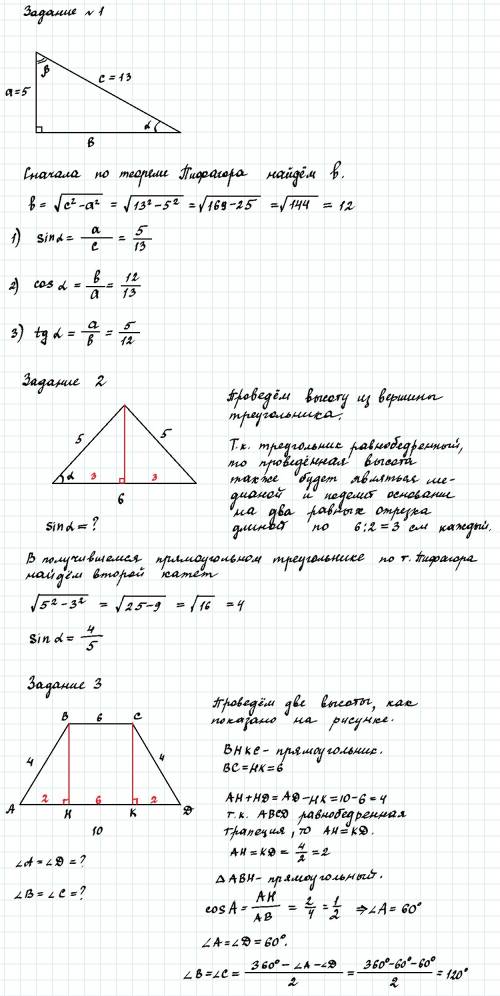 Задание №1
β
c = 13
a=5
α
в
Сначала по теореме Пифагора найдём в.
в = √c²-a² = √13²-5² = √169-25 = √144 = 12
1) sinα = a/c = 5/13
2) cos α = в/a = 12/13
3) tg α = a/в = 5/12
Задание 2
5
5
α
3
3
6
sinα = ?
Проведём высоту из вершины
треугольника.
Т.к. треугольник равнобедренный,
то проведённая высота
также будет являться ме-
дианой и поделит основание
на два равных отрезка
длиной по 6:2=3 см каждый.
В получившемся прямоугольном треугольнике по т. Пифагора
найдём второй катет
√5²-3² = √25-9 = √16 = 4
sin α = 4/5
Задание 3
B
6
C
4
4
A
2
6
2
D
H
K
10
∠A=∠D=?
∠B=∠C=?
Проведём две высоты, как
показано на рисунке.
BHKC - прямоугольник.
BC=HK=6
AH+HD=AD-HK=10-6=4
т.к. ABCD равнобедренная
трапеция, то AH=KD.
AH=KD= 4/2 =2
△ABH- прямоугольный.
cosA= AH/AB = 2/4 = 1/2 ⇒∠A=60°
∠A=∠D=60°.
∠B=∠C= 360°-∠A-∠D/2 = 360°-60°-60°/2 =120°